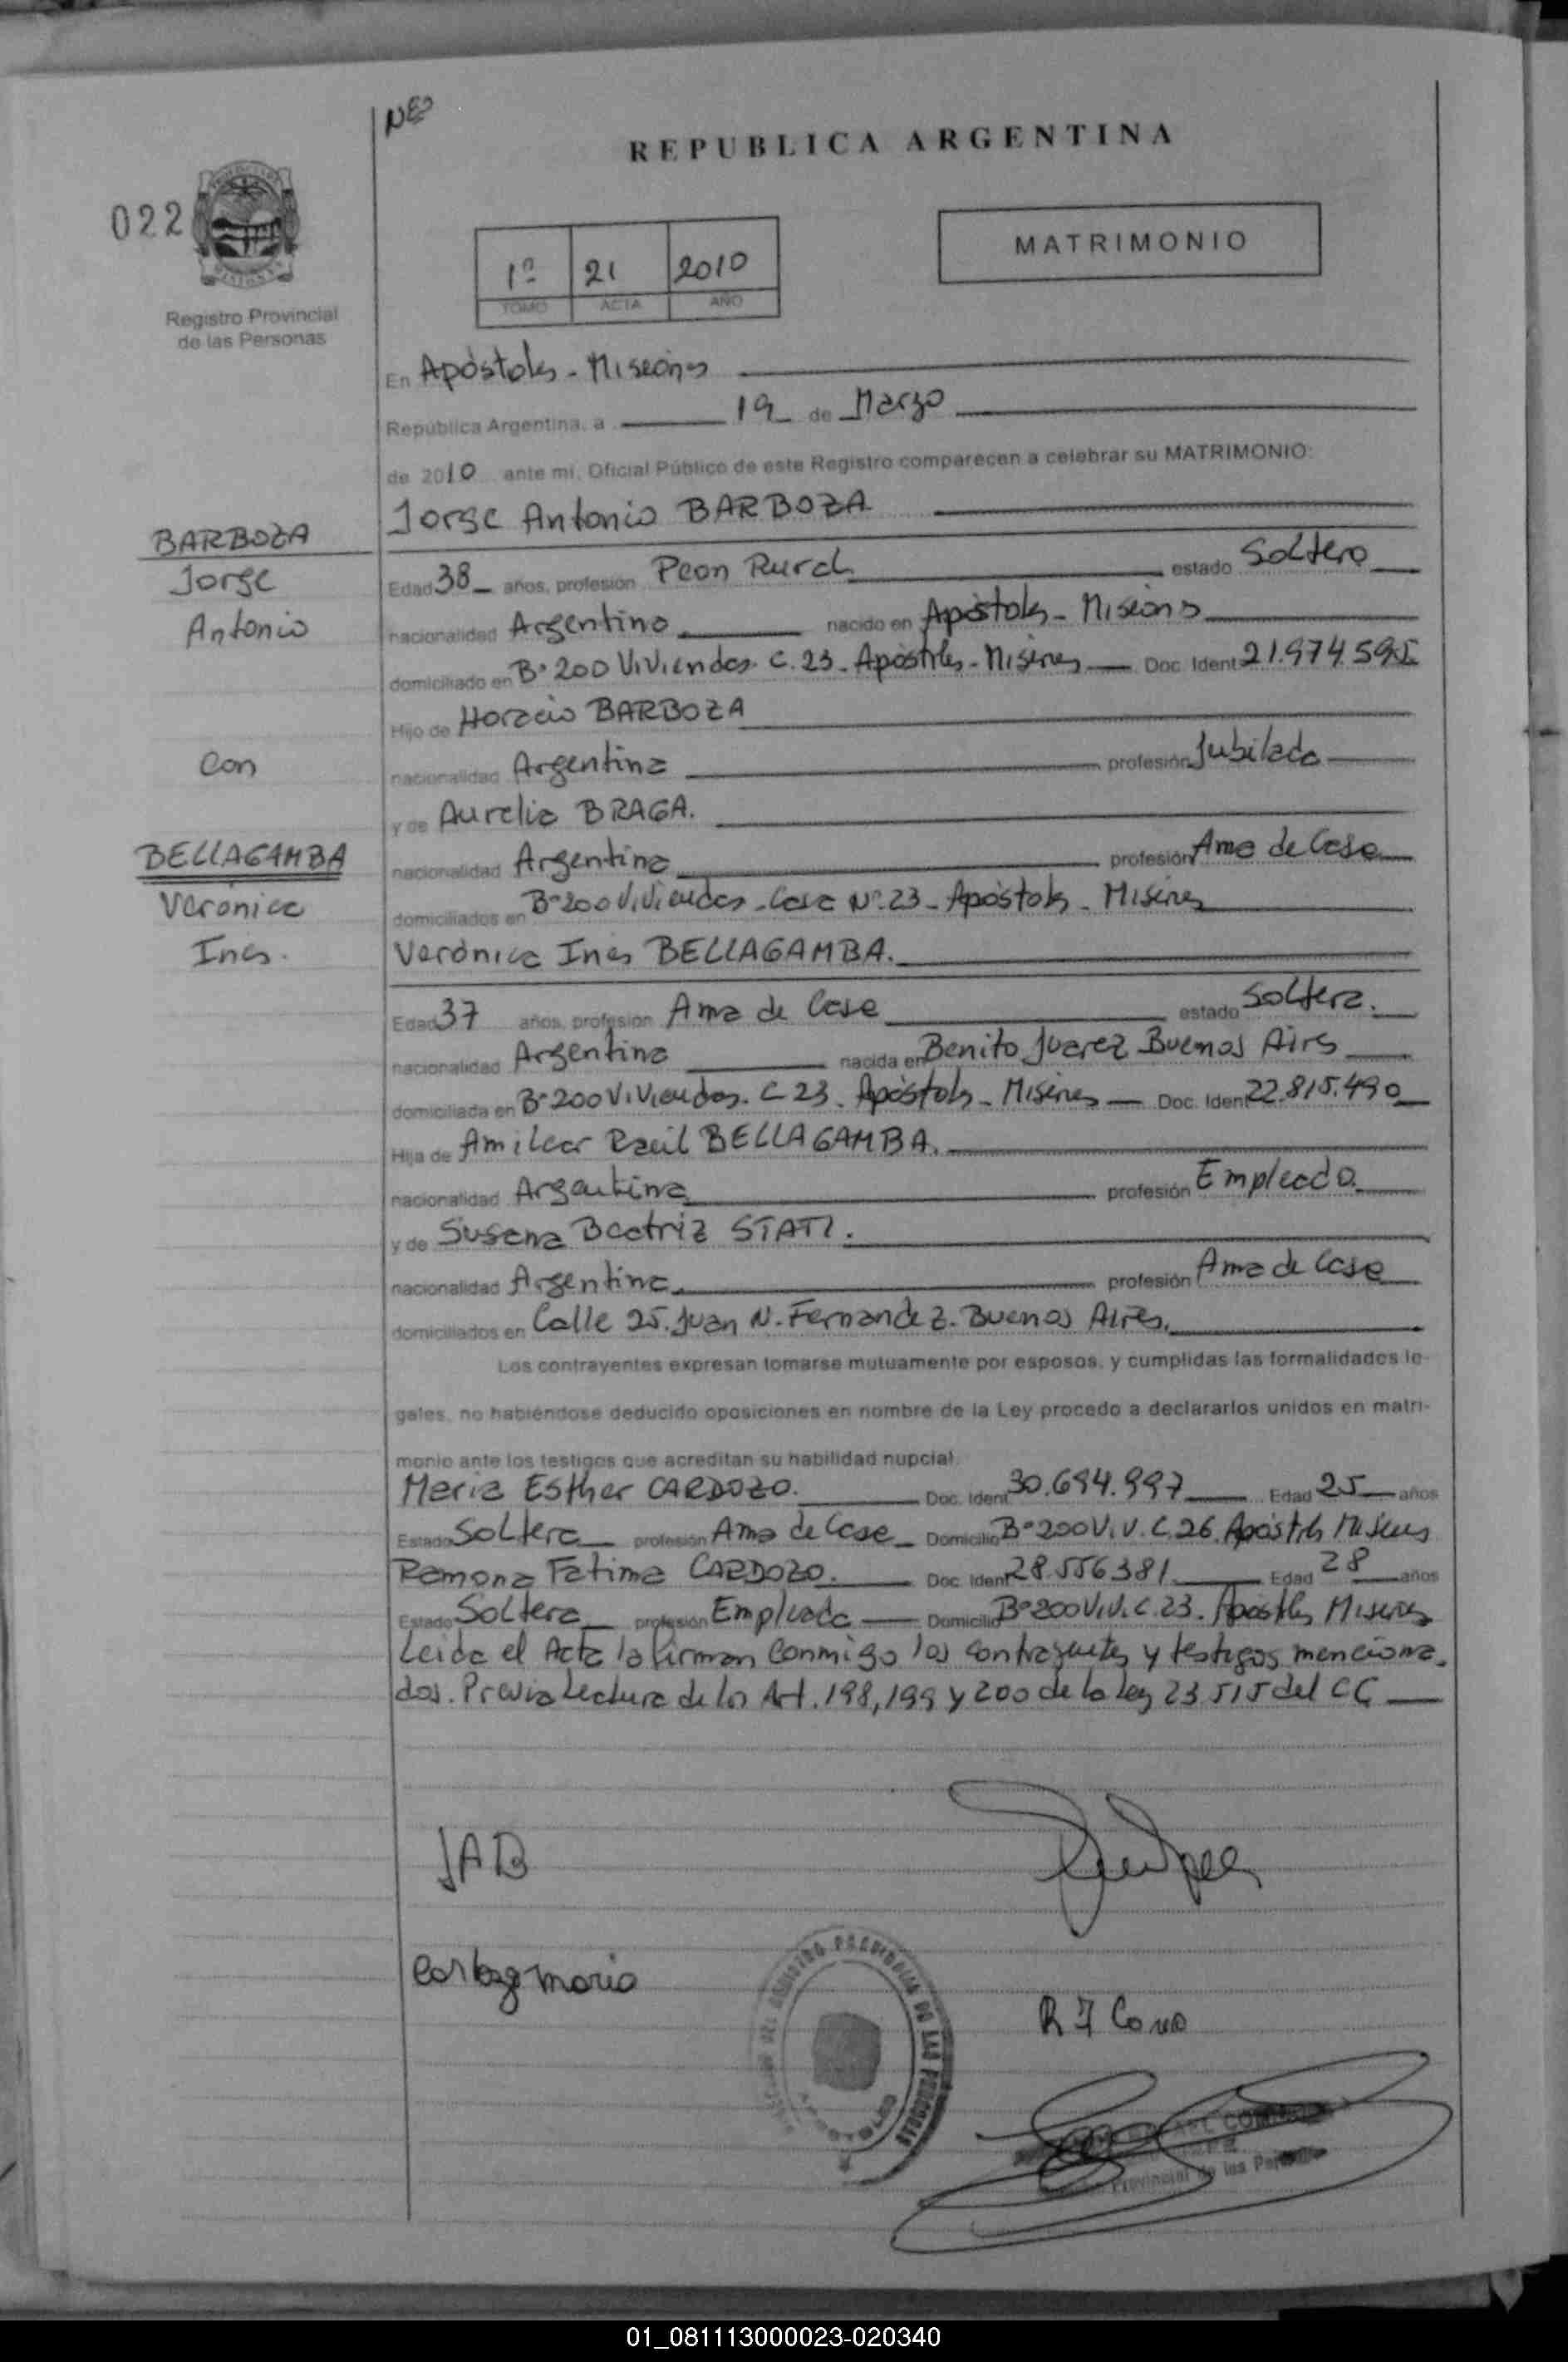 NE
REPUBLICA ARGENTINA
022
1º 21 2010
TOMO ACTA AÑO
MATRIMONIO
Registro Provincial
de las Personas
En Apóstoles - Misiones
República Argentina, a 19 de Marzo
de 2010 ante mi, Oficial Público de este Registro comparecen a celebrar su MATRIMONIO:
Jorge Antonio BARBOZA
BARBOZA
Jorge
Antonio
con
BELLAGAMBA
Verónica
Ines.
Edad 38 años, profesión Peon Rural estado Soltero
nacionalidad Argentino nacido en Apóstoles - Misiones
domiciliado en Bº 200 Viviendas. C. 23 - Apóstoles - Misiones Doc. Ident 21.974.595
Hijo de Horacio BARBOZA
nacionalidad Argentina profesión Jubilado
y de Aurelia BRAGA.
nacionalidad Argentina profesión Ama de Casa
domiciliados en Bº 200 Viviendas - Casa Nº 23 - Apóstoles - Misiones
Verónica Ines BELLAGAMBA.
Edad 37 años, profesión Ama de Casa estado Soltera.
nacionalidad Argentina nacida en Benito Juarez Buenos Aires
domiciliada en Bº 200 Viviendas. C 23. Apóstoles - Misiones Doc. Ident 22.815.490
Hija de Amilcar Raúl BELLAGAMBA.
nacionalidad Argentina profesión Empleado.
y de Susana Beatriz STATI.
nacionalidad Argentina profesión Ama de Casa
domiciliados en Calle 25. Juan N. Fernandez. Buenos Aires.
Los contrayentes expresan tomarse mutuamente por esposos, y cumplidas las formalidades le-
gales, no habiéndose deducido oposiciones en nombre de la Ley procedo a declararlos unidos en matri-
monio ante los testigos que acreditan su habilidad nupcial.
Maria Esther CARDOZO. Doc. Ident 30.694.997 Edad 25 años
Estado Soltera profesión Ama de Casa Domicilio Bº 200 V.V. C. 26. Apóstoles Misiones
Ramona Fatima CARDOZO. Doc. Ident 28.556381 Edad 28 años
Estado Soltera profesión Empleada Domicilio Bº 200 Viv. C. 23. Apóstoles Misiones
Leida el Acta la firman conmigo los contrayentes y testigos menciona-
dos. Previa Lectura de los Art. 198, 199 y 200 de la Ley 23 515 del CC
JAB
maria
R F
Provincial de las
01_081113000023-020340